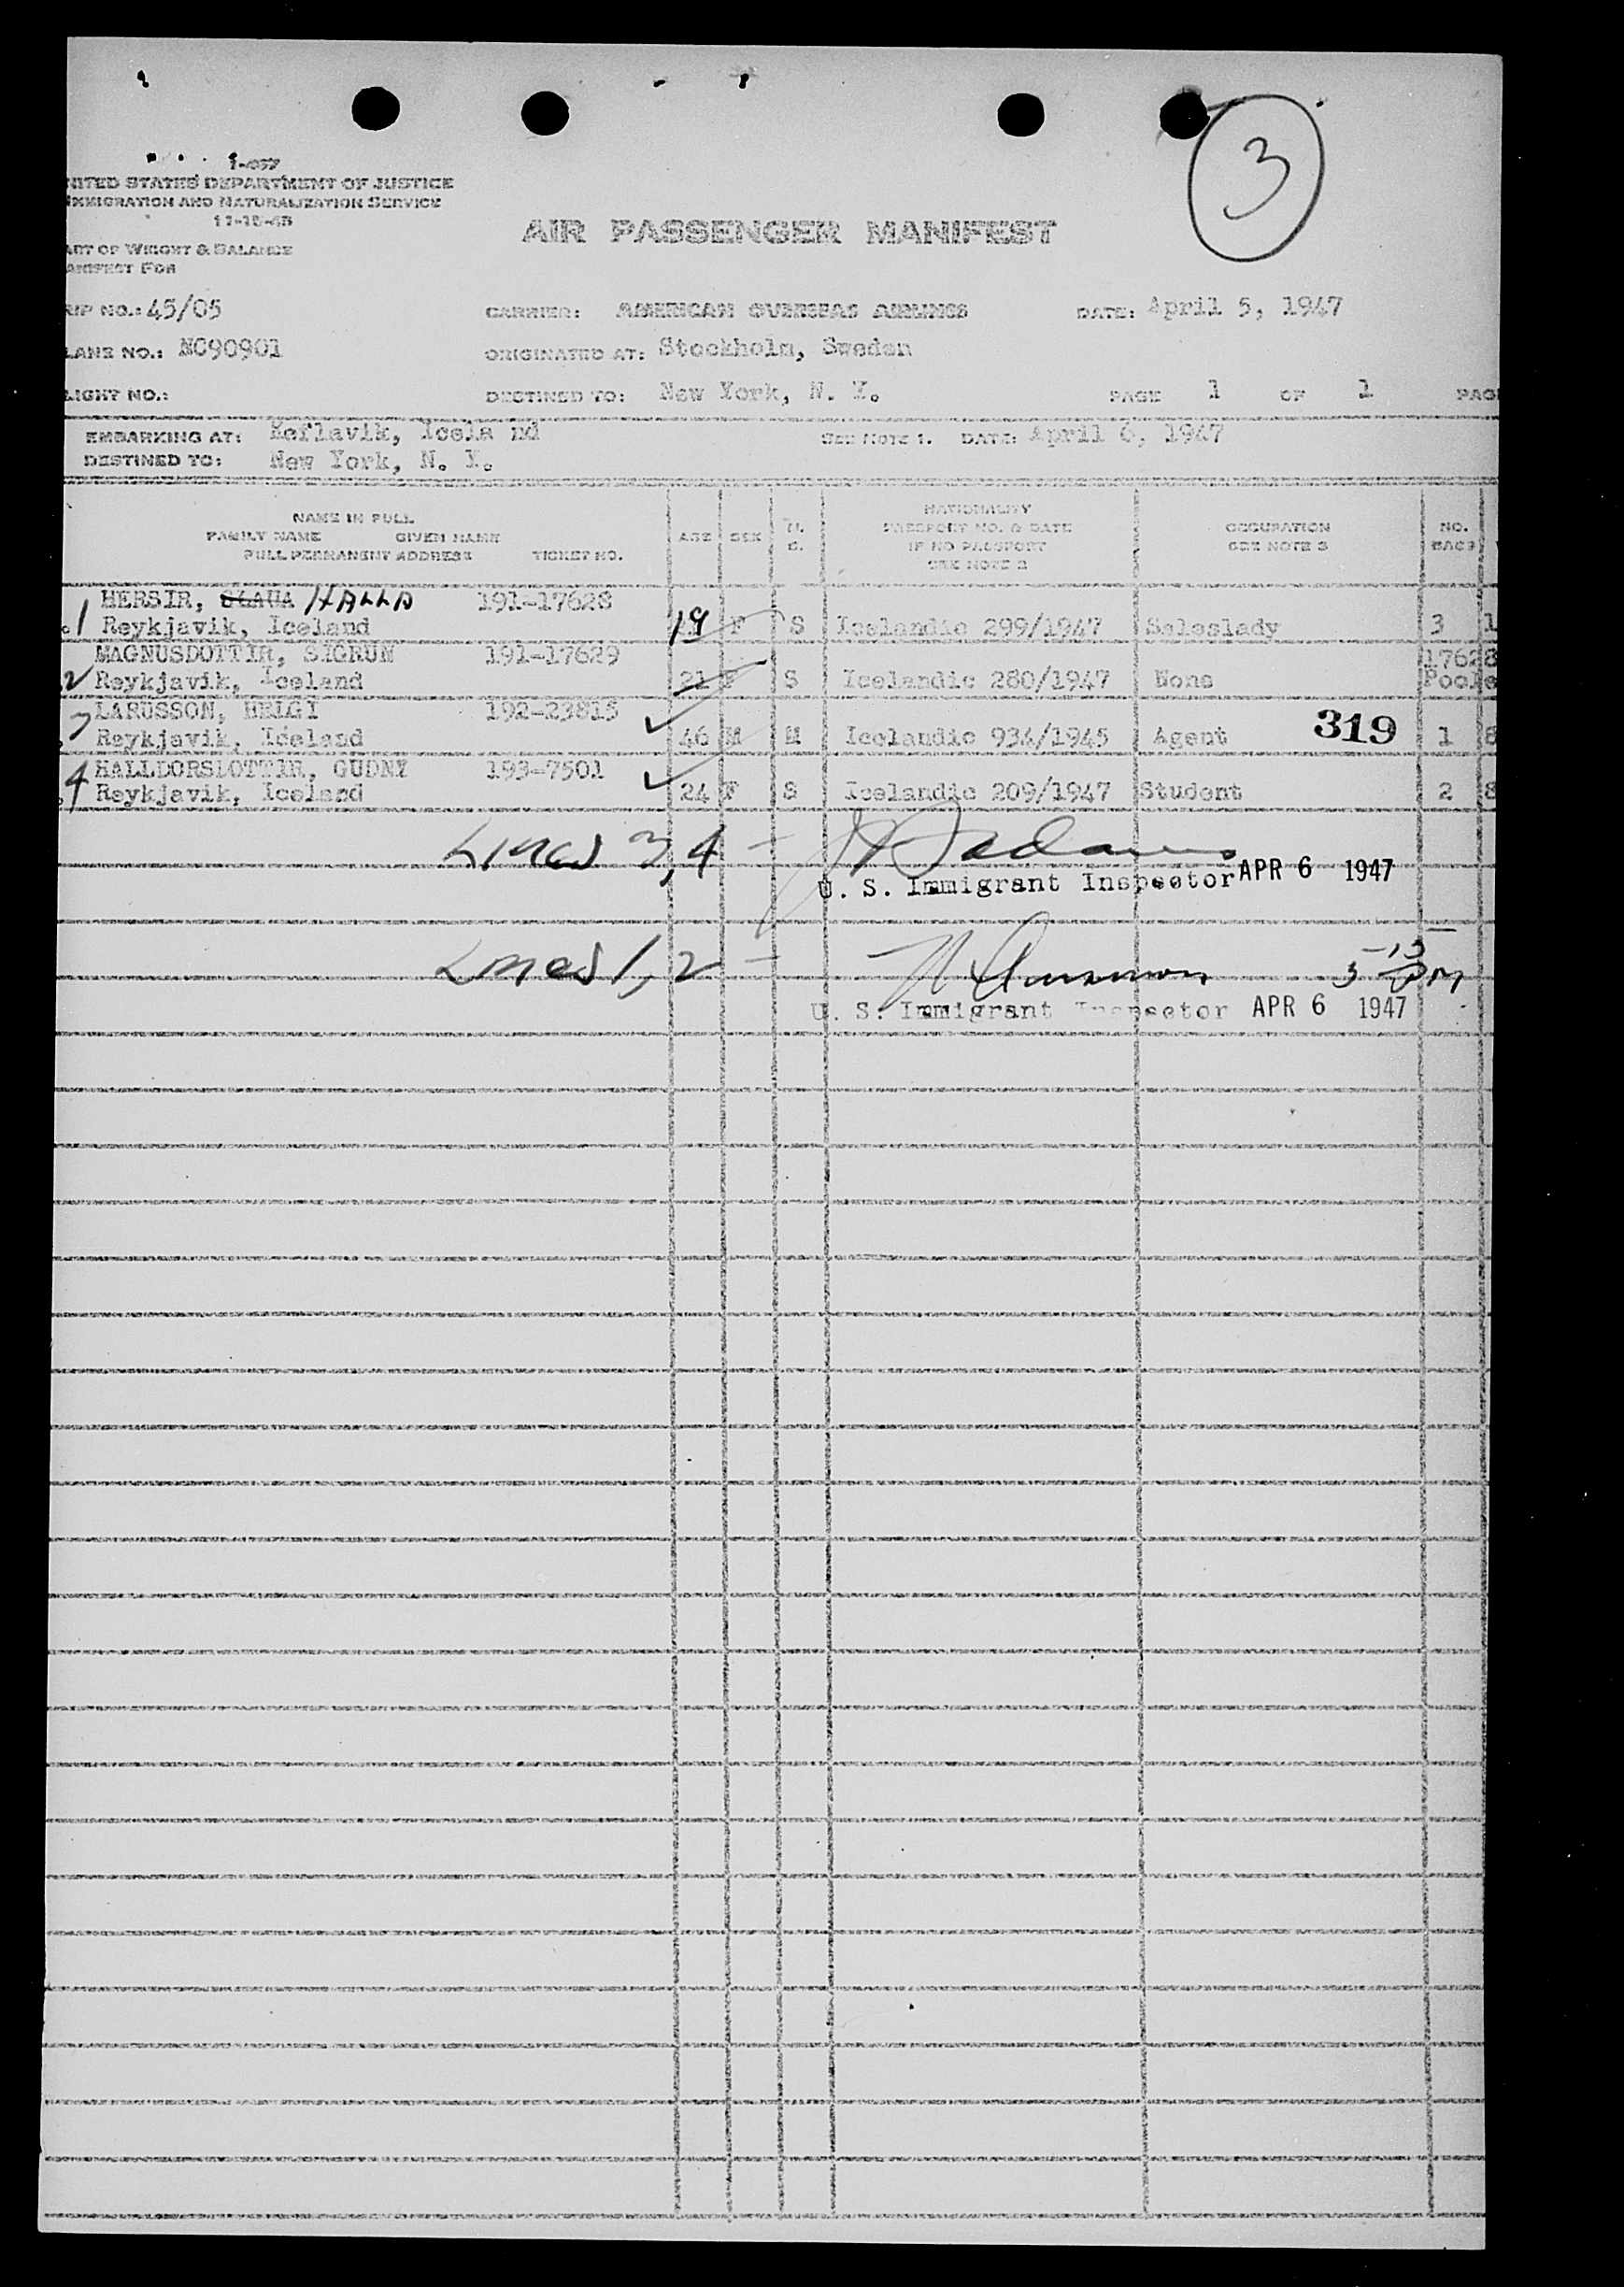 3
I-437
NITED STATES DEPARTMENT OF JUSTICE
IMMIGRATION AND NATURALIZATION SERVICE
11-15-45
AIR PASSENGER MANIFEST
ART OF WEIGHT & BALANCE
ANIFEST FOR
RIP NO.: 45/05 CARRIER: AMERICAN OVERSEAS AIRLINES DATE: April 5, 1947
LANE NO.: NC90901 ORIGINATED AT: Stockholm, Sweden
LIGHT NO.: DESTINED TO: New York, N. Y. PAGE 1 OF 1 PAG
EMBARKING AT: Keflavik, Icela nd SEE NOTE 1. DATE: April 6, 1947
DESTINED TO: New York, N. Y.
NAME IN FULL
FAMILY NAME GIVEN NAME
FULL PERMANENT ADDRESS TICKET NO.
AGE SEX M. S.
NATIONALITY
PASSPORT NO. & DATE
IF NO PASSPORT
SEE NOTE 2
OCCUPATION
SEE NOTE 3
NO.
BAGS
HERSIR, HALLA 191-17628
1 Reykjavik, Iceland 19 F S Icelandic 299/1947 Saleslady 3 1
MAGNUSDOTTIR, SIGRUN 191-17629 17628
2 Reykjavik, Iceland 21 F S Icelandic 280/1947 None Poole
LARUSSON, HELGI 192-23815
Reykjavik, Iceland 46 M M Icelandic 934/1945 Agent 319 1 8
HALLDORSDOTTIR, GUDNY 193-7501
4 Reykjavik, Iceland 24 F S Icelandic 209/1947 Student 2 8
Lines 3,4 -
U. S. Immigrant Inspector APR 6 1947
Lines 1,2 -
U. S. Immigrant Inspector APR 6 1947